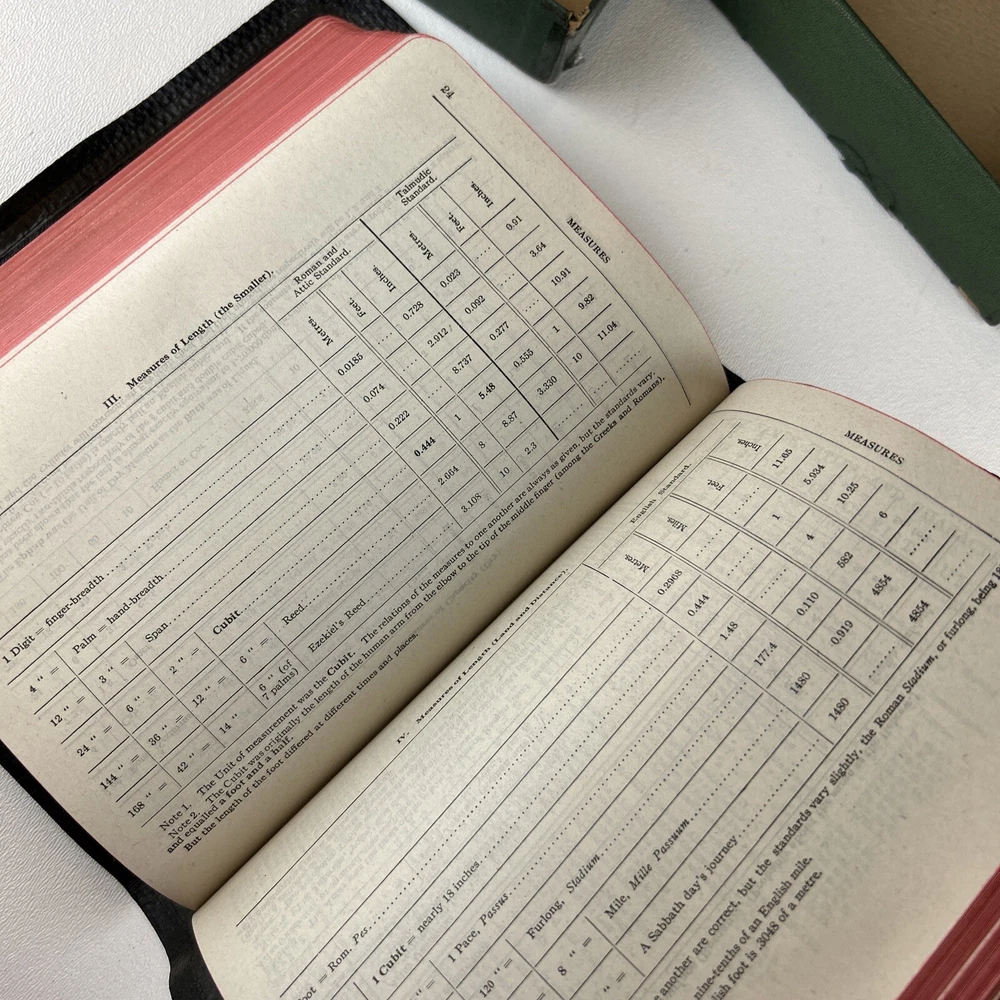 24 MEASURES
III. Measures of Length (the Smaller).
Roman and Attic Standard. Talmudic Standard.
Metres. Feet. Inches. Metres. Feet. Inches.
1 Digit = finger-breadth 0.0185 .... 0.728 0.023 .... 0.91
4 " = Palm = hand-breadth 0.074 .... 2.912 0.092 .... 3.64
12 " = 3 " = Span 0.222 .... 8.737 0.277 .... 10.91
24 " = 6 " = 2 " = Cubit 0.444 1 5.48 0.555 1 9.82
144 " = 36 " = 12 " = 6 " = Reed 2.664 8 8.87 3.330 10 11.04
168 " = 42 " = 14 " 6 " (of 7 palms) Ezekiel's Reed 3.108 10 2.3 .... .... ....
Note 1. The Unit of measurement was the Cubit. The relations of the measures to one another are always as given, but the standards vary.
Note 2. The Cubit was originally the length of the human arm from the elbow to the tip of the middle finger (among the Greeks and Romans),
and equalled a foot and a half.
But the length of the foot differed at different times and places.
MEASURES
IV. Measures of Length (Land and Distance).
English Standard.
Metres. Miles. Feet. Inches.
= Rom. Pes 0.2968 .... .... 11.65
1 Cubit = nearly 18 inches 0.444 .... 1 5.934
1 Pace, Passus 1.48 .... 4 10.25
120 " = Furlong, Stadium 177.4 0.110 582 6
8 " = Mile, Mille Passuum 1480 0.919 4854 ....
" = A Sabbath day's journey 1480 .... 4854 ....
another are correct, but the standards vary slightly, the Roman Stadium, or furlong, being
nine-tenths of an English mile.
foot is .3048 of a metre.